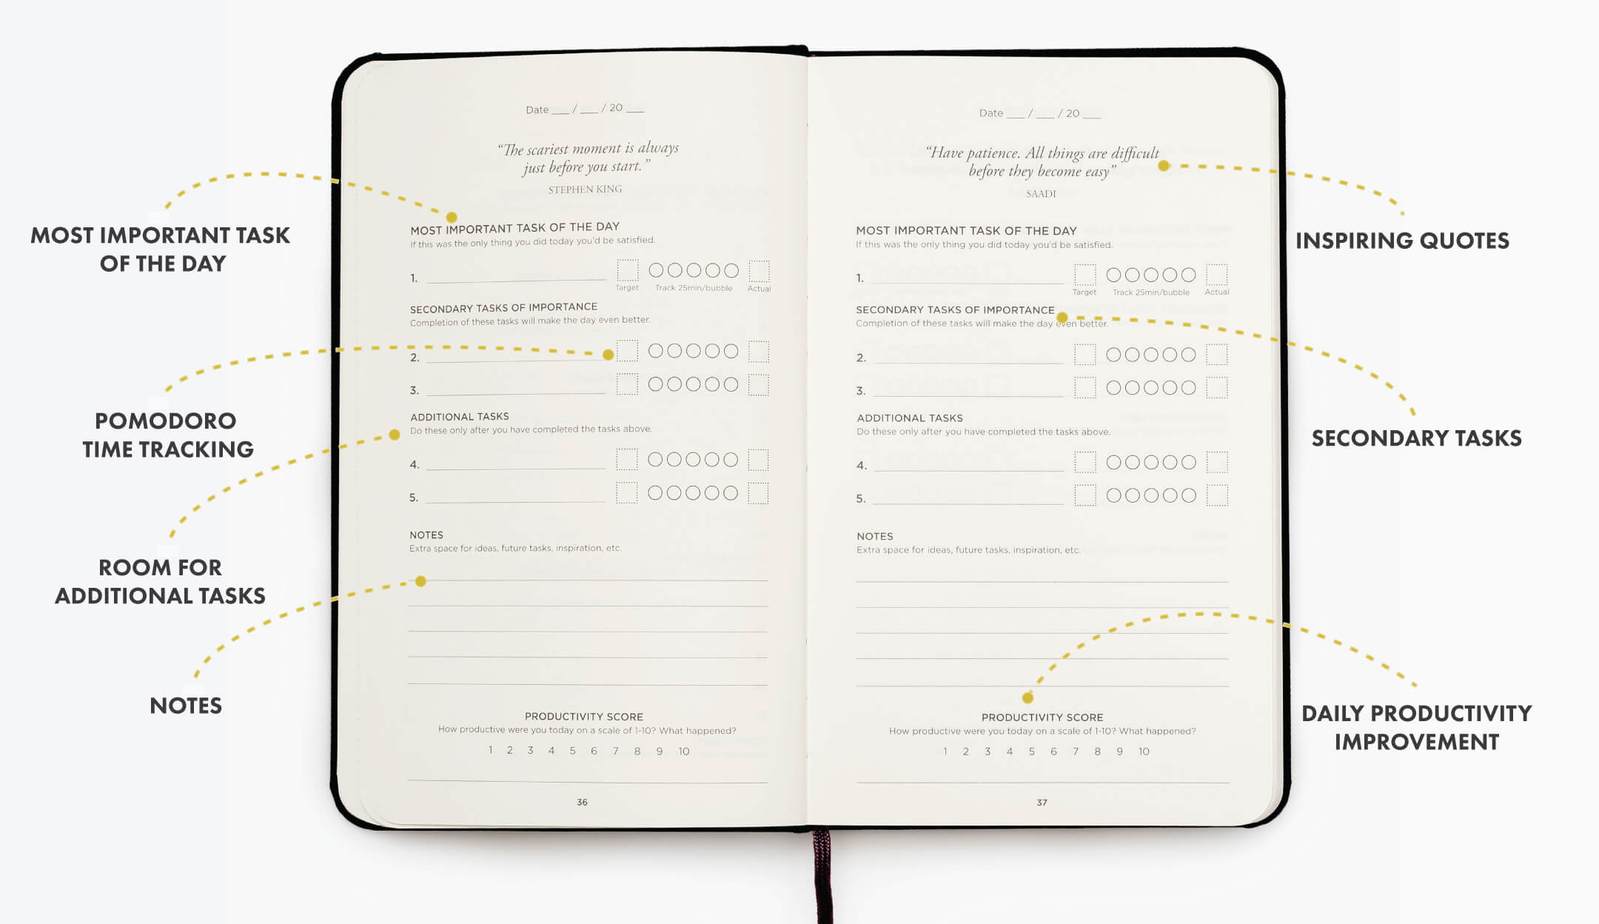 MOST IMPORTANT TASK
OF THE DAY
POMODORO
TIME TRACKING
ROOM FOR
ADDITIONAL TASKS
NOTES
Date ___ / ___ / 20 ___
“The scariest moment is always
just before you start.”
STEPHEN KING
MOST IMPORTANT TASK OF THE DAY
If this was the only thing you did today you'd be satisfied.
1.
Target Track 25min/bubble Actual
SECONDARY TASKS OF IMPORTANCE
Completion of these tasks will make the day even better.
2.
3.
ADDITIONAL TASKS
Do these only after you have completed the tasks above.
4.
5.
NOTES
Extra space for ideas, future tasks, inspiration, etc.
PRODUCTIVITY SCORE
How productive were you today on a scale of 1-10? What happened?
1 2 3 4 5 6 7 8 9 10
36
Date ___ / ___ / 20 ___
“Have patience. All things are difficult
before they become easy”
SAADI
MOST IMPORTANT TASK OF THE DAY
If this was the only thing you did today you'd be satisfied.
1.
Target Track 25min/bubble Actual
SECONDARY TASKS OF IMPORTANCE
Completion of these tasks will make the day even better.
2.
3.
ADDITIONAL TASKS
Do these only after you have completed the tasks above.
4.
5.
NOTES
Extra space for ideas, future tasks, inspiration, etc.
PRODUCTIVITY SCORE
How productive were you today on a scale of 1-10? What happened?
1 2 3 4 5 6 7 8 9 10
37
INSPIRING QUOTES
SECONDARY TASKS
DAILY PRODUCTIVITY
IMPROVEMENT